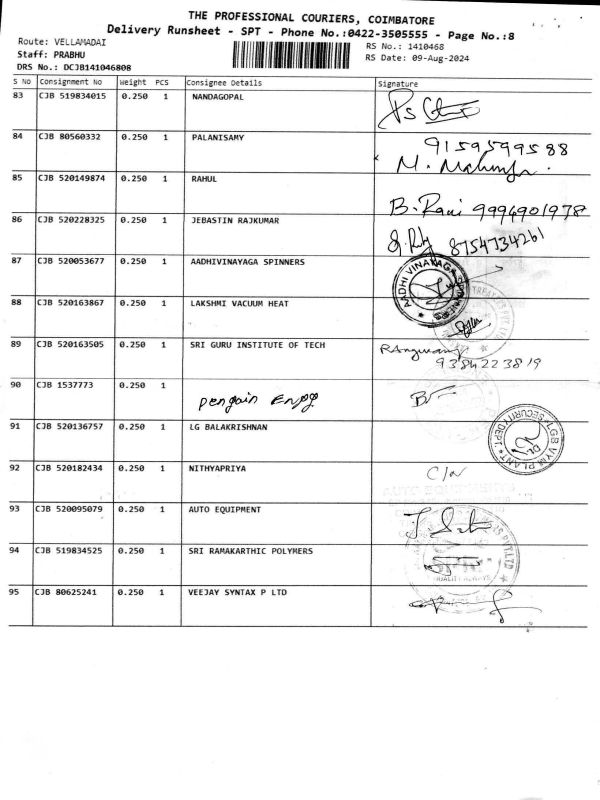 THE PROFESSIONAL COURIERS, COIMBATORE
Delivery Runsheet - SPT - Phone No.:0422-3505555 - Page No.:8
Route: VELLAMADAI
Staff: PRABHU
DRS No.: DCJB141046808
RS No.: 1410468
RS Date: 09-Aug-2024
S No Consignment No Weight PCS Consignee Details Signature
83 CJB 519834015 0.250 1 NANDAGOPAL
84 CJB 80560332 0.250 1 PALANISAMY 9159599588
85 CJB 520149874 0.250 1 RAHUL B. Ravi 9994901978
86 CJB 520228325 0.250 1 JEBASTIN RAJKUMAR 8754734261
87 CJB 520053677 0.250 1 AADHIVINAYAGA SPINNERS AADHI VINAYAGA SPINNERS
88 CJB 520163867 0.250 1 LAKSHMI VACUUM HEAT
89 CJB 520163505 0.250 1 SRI GURU INSTITUTE OF TECH
9384223819
90 CJB 1537773 0.250 1 Pengain Engg
91 CJB 520136757 0.250 1 LG BALAKRISHNAN LGB VYM PLANT SECURITY DEPT.
92 CJB 520182434 0.250 1 NITHYAPRIYA
93 CJB 520095079 0.250 1 AUTO EQUIPMENT
94 CJB 519834525 0.250 1 SRI RAMAKARTHIC POLYMERS
95 CJB 80625241 0.250 1 VEEJAY SYNTAX P LTD